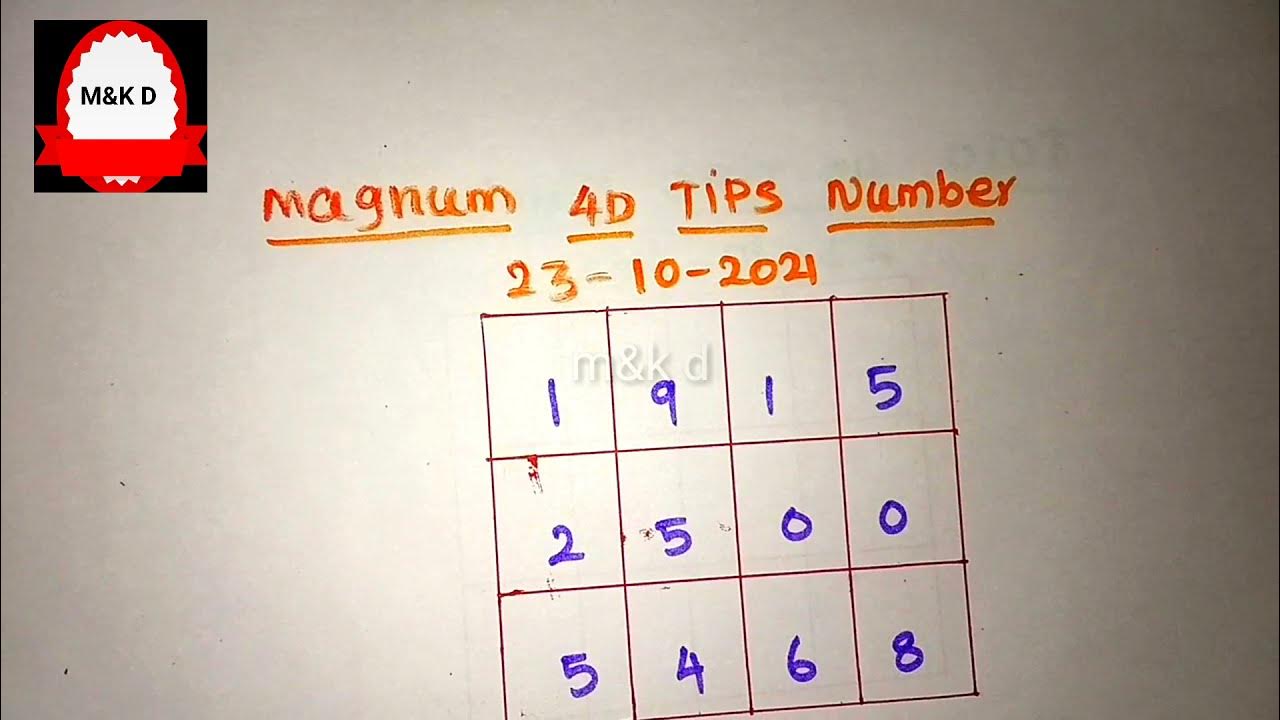 M&K D
Magnum 4D TiPs Number
23-10-2021
m&k d
1 9 1 5
2 5 0 0
5 4 6 8